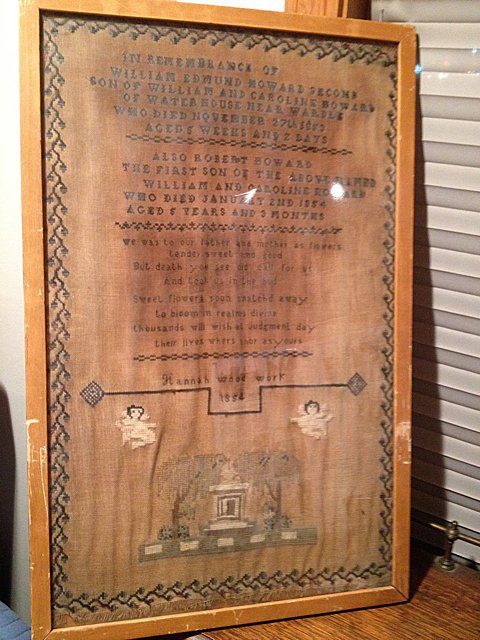 IN REMEMBRANCE OF
WILLIAM EDMUND HOWARD SECOND
SON OF WILLIAM AND CAROLINE HOWARD
OF WATERHOUSE NEAR WARDLE
WHO DIED NOVEMBER 27th 1853
AGED 5 WEEKS AND 2 DAYS
ALSO ROBERT HOWARD
THE FIRST SON OF THE ABOVE NAMED
WILLIAM AND CAROLINE HOWARD
WHO DIED JANUARY 2ND 1854
AGED 5 YEARS AND 3 MONTHS
We was to our father and mother as flowers
tender sweet and good
But death you see did call for us
And took us in the bud
Sweet flowers soon snatchd away
to bloom in realms divine
thousands will wish at Judgment day
their lives whers shor as yours
Hannah wood work
1854